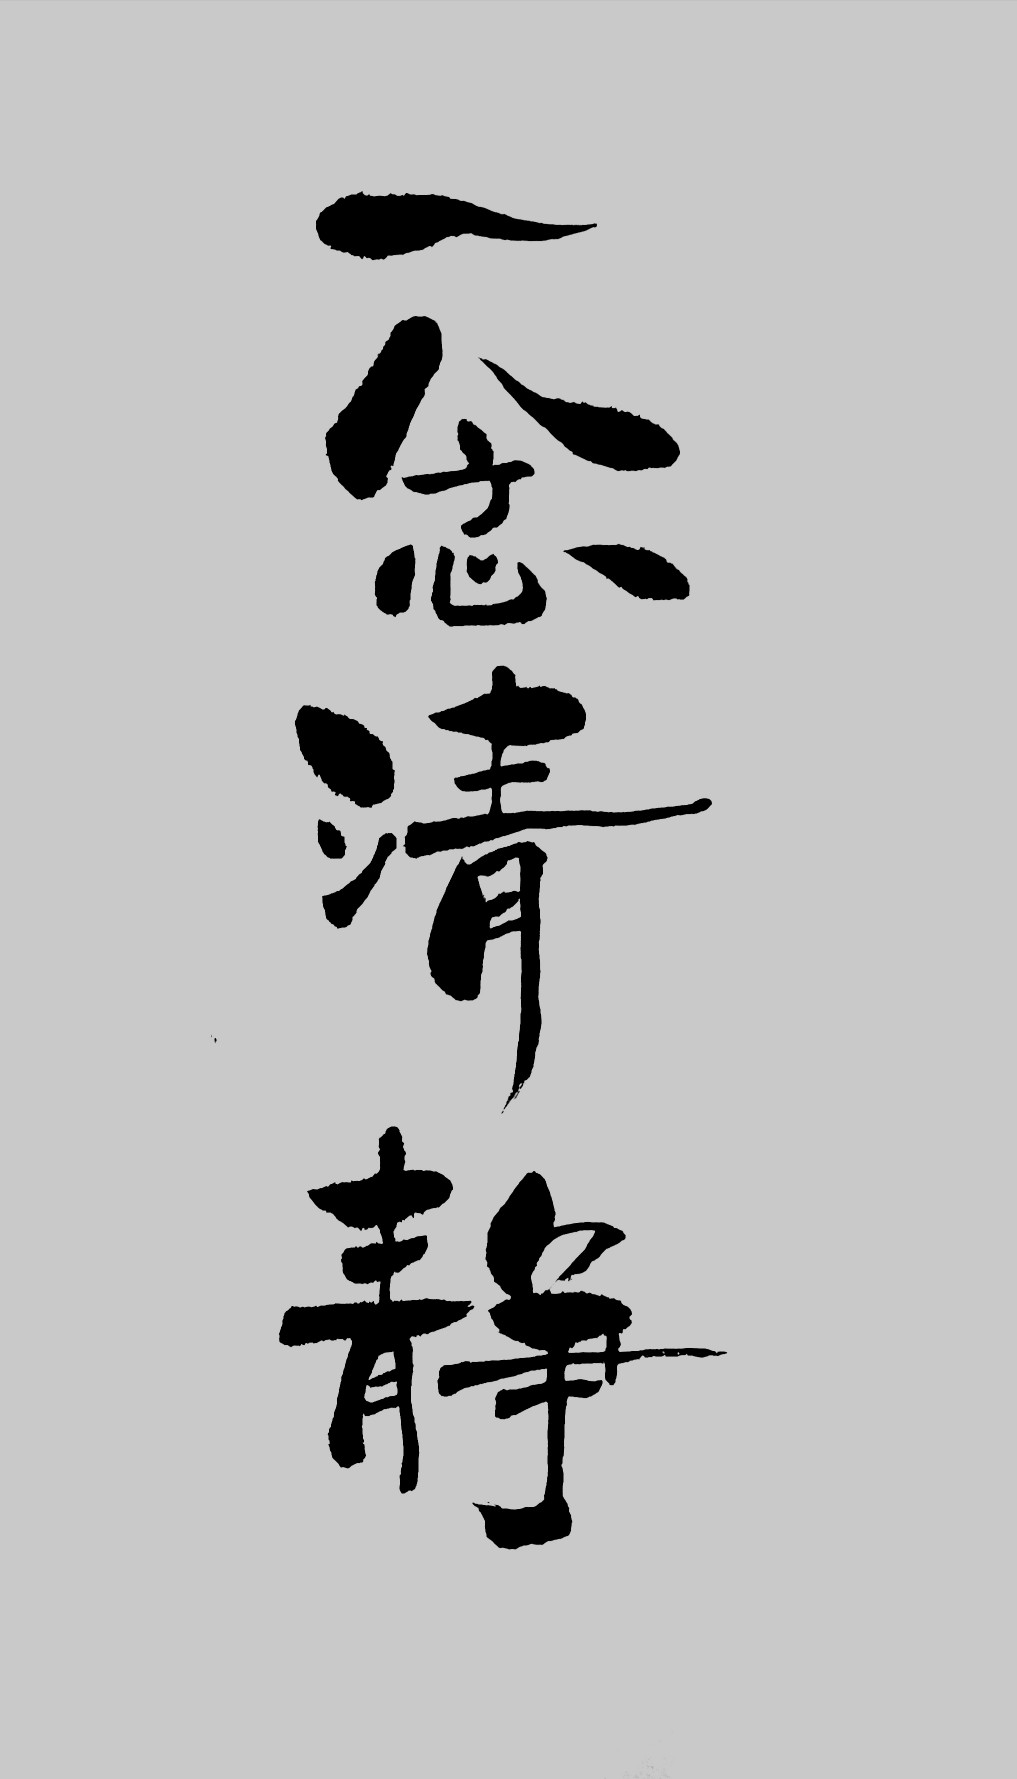 一念清静